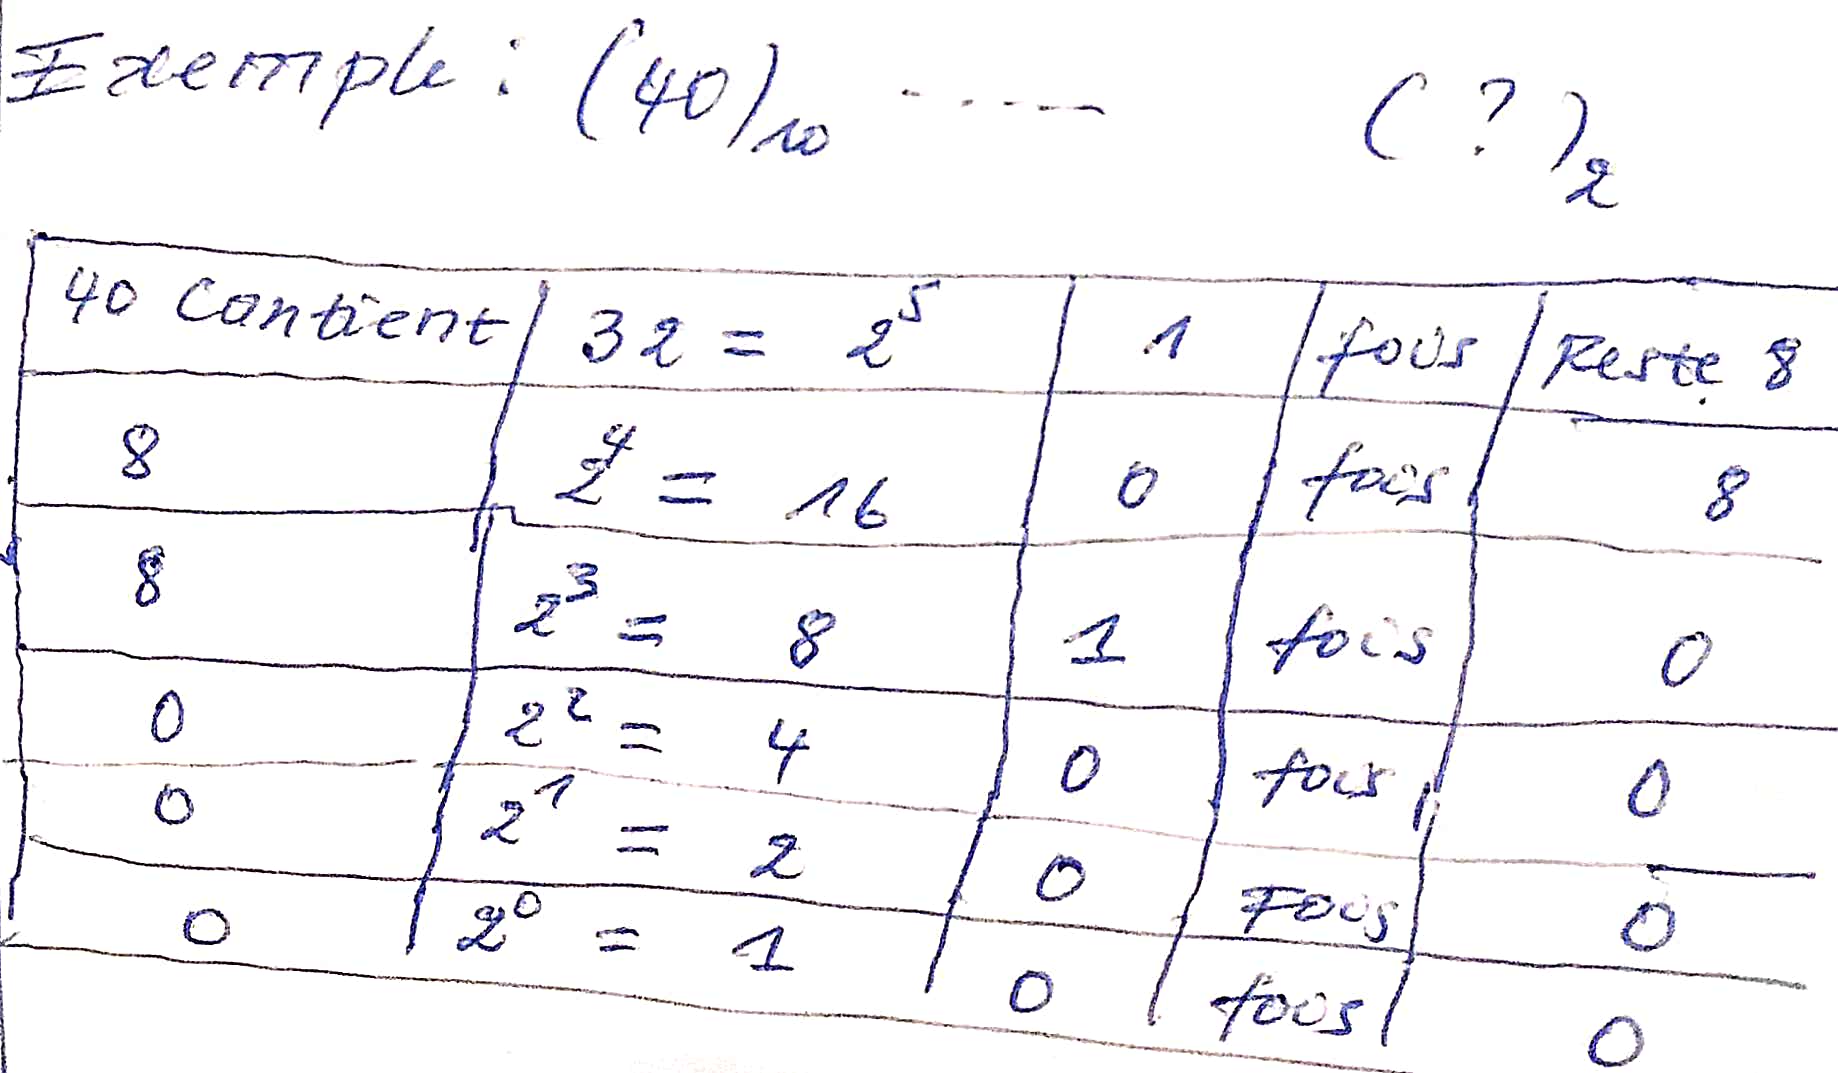 Exemple : (40)₁₀ ------ ( ? )₂
40 Contient 32 = 2⁵ 1 fois Reste 8
8 2⁴ = 16 0 fois 8
8 2³ = 8 1 fois 0
0 2² = 4 0 fois 0
0 2¹ = 2 0 Fois 0
0 2⁰ = 1 0 fois 0